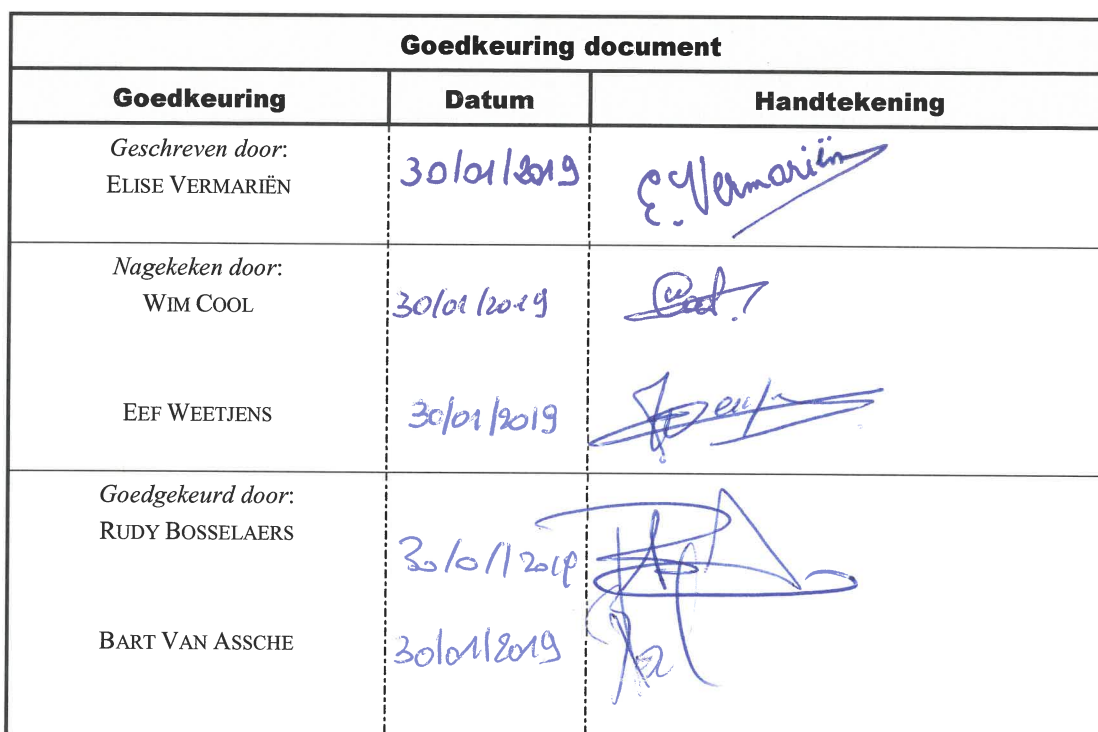 Goedkeuring document
Goedkeuring Datum Handtekening
Geschreven door:
ELISE VERMARIËN 30/01/2019 E. Vermariën
Nagekeken door:
WIM COOL 30/01/2019 Cool
EEF WEETJENS 30/01/2019
Goedgekeurd door:
RUDY BOSSELAERS 30/01/2019
BART VAN ASSCHE 30/01/2019